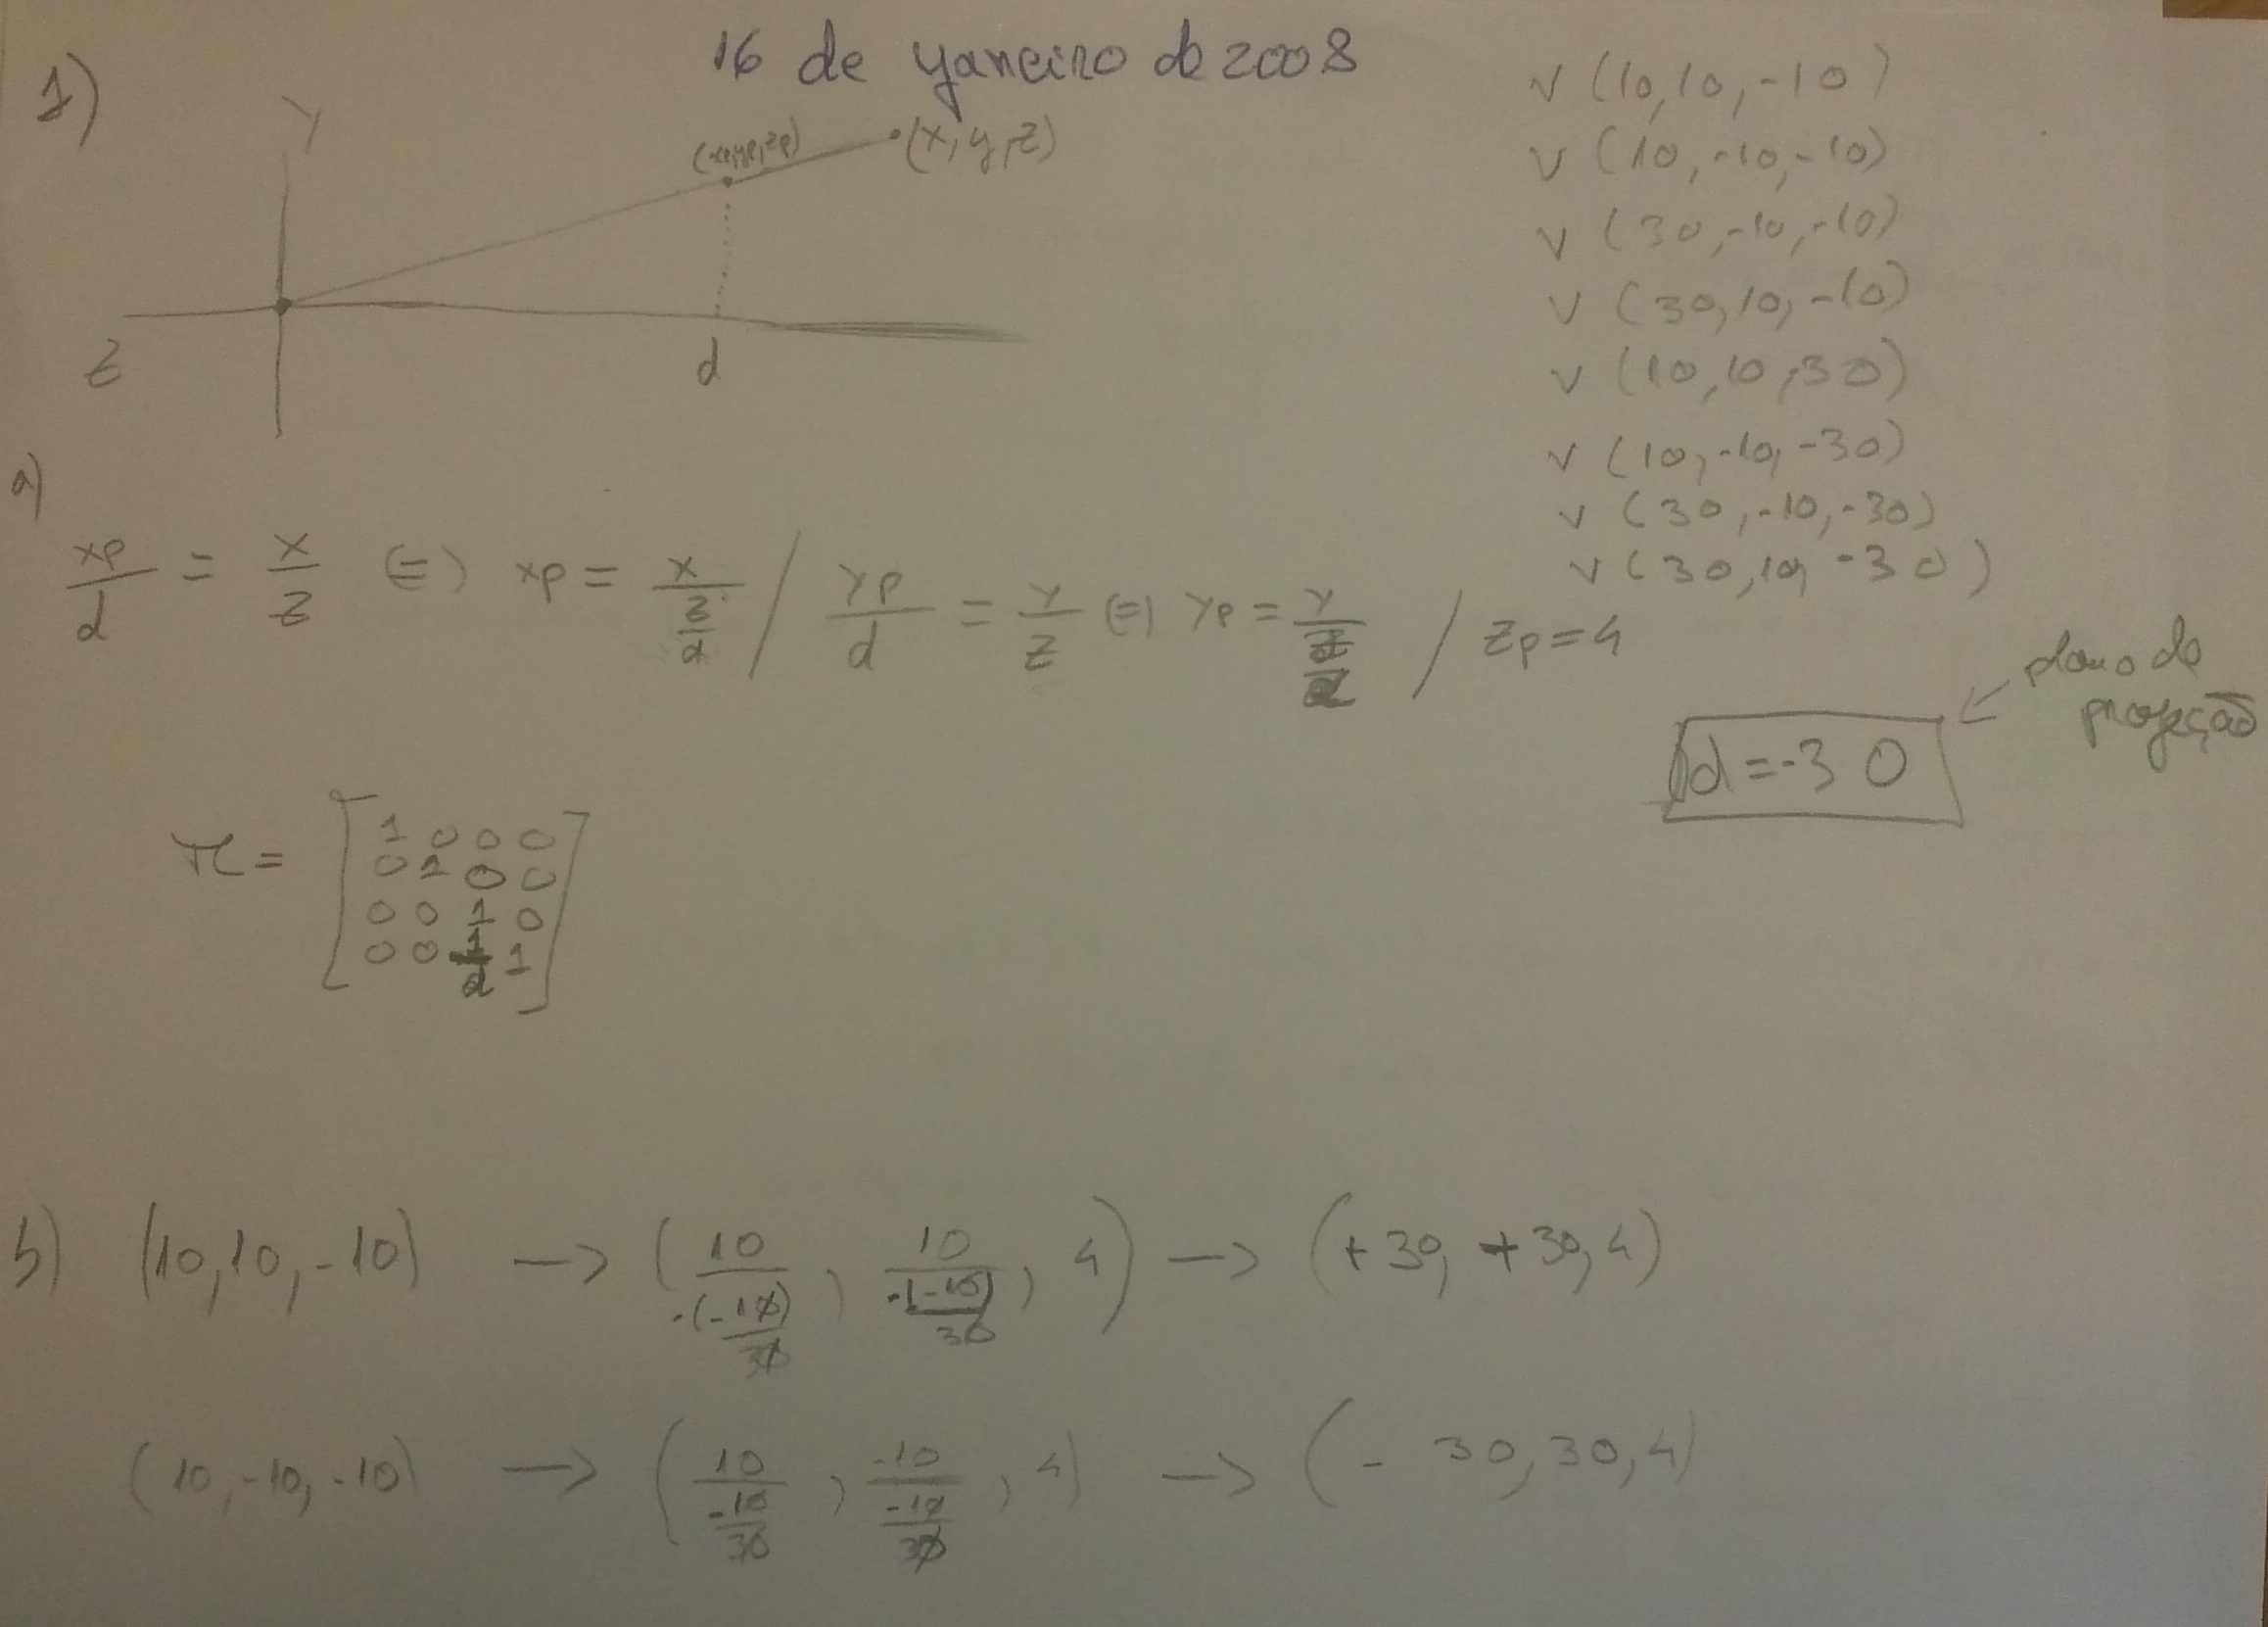 16 de janeiro de 2008
1)
Y
(xp,yp,zp)
(x,y,z)
z
d
v (10,10,-10)
v (10,-10,-10)
v (30,-10,-10)
v (30,10,-10)
v (10,10,30)
v (10,-10,-30)
v (30,-10,-30)
v (30,10,-30)
a)
xp/d = x/z (=) xp = x/(z/d) / yp/d = y/z (=) yp = y/(z/d) / zp=4
plano de
projeção
d=-30
π = [1 0 0 0
0 1 0 0
0 0 1 0
0 0 1/d 1]
b) (10,10,-10) -> (10/(-(-10)/30), 10/(-(-10)/30), 4) -> (+30, +30, 4)
(10,-10,-10) -> (10/(-10/30), -10/(-10/30), 4) -> (-30, 30, 4)